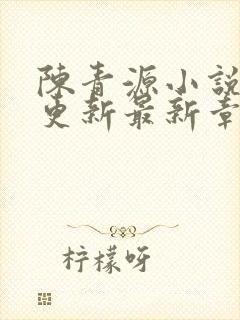 陳青源小說
更新最新章
柠檬呀